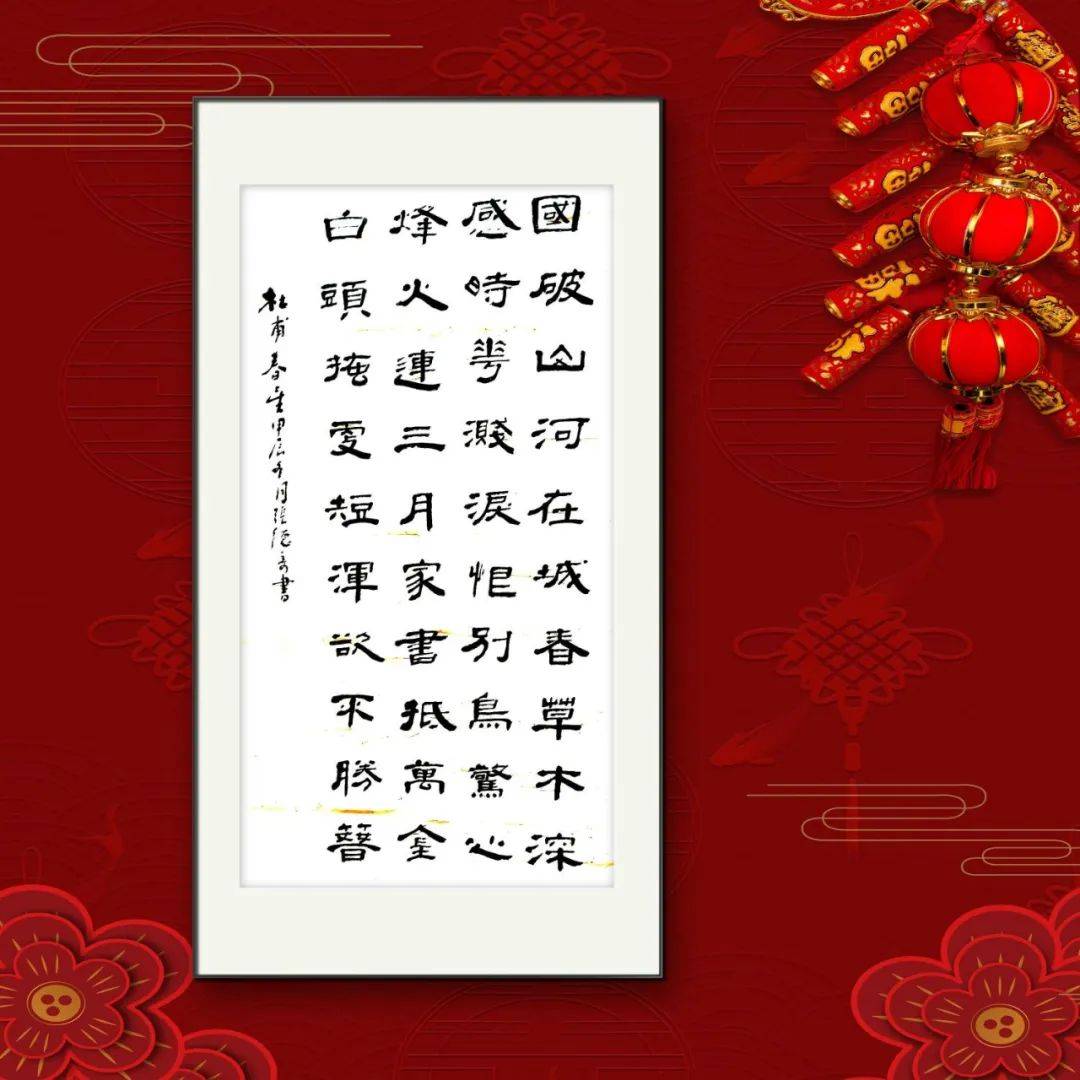 國破山河在城春草木深
感時華濺淚恨別鳥驚心
烽火連三月家書抵萬金
白頭搔更短渾欲不勝簪
杜甫春望甲辰月張德書